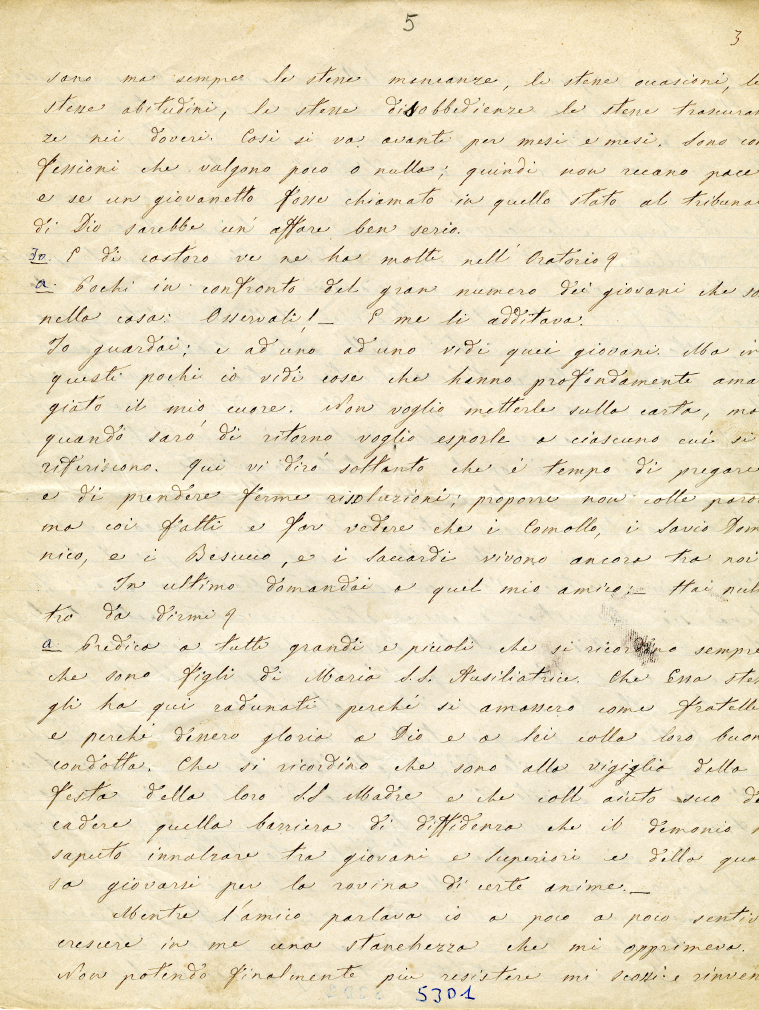 5
3
sano ma sempre le stesse mancanze, le stesse occasioni, le
stesse abitudini, le stesse disobbedienze le stesse trascuran
ze nei doveri. Così si va avanti per mesi e mesi. Sono con
fessioni che valgono poco o nulla; quindi non recano pace
e se un giovanetto fosse chiamato in quello stato al tribuna
di Dio sarebbe un' affare ben serio.
Io. E di costoro ve ne ha molti nell' Oratorio?
a. Pochi in confronto del gran numero dei giovani che so
nella casa: Osservali! _ E me li additava.
Io guardai; e ad uno ad uno vidi quei giovani. Ma in
questi pochi io vidi cose che hanno profondamente ama
giato il mio cuore. Non voglio metterle sulla carta, ma
quando sarò di ritorno voglio esporle a ciascuno cui si
riferiscono. Qui vi dirò soltanto che è tempo di pregare
e di prendere ferme risoluzioni; proporre non colle paro
ma coi fatti e far vedere che i Comollo, i Savio Dom
nico, e i Besucco, e i Saccardi vivono ancora tra noi
In ultimo domandai a quel mio amico: _ Hai null
tro da dirmi?
a. Predica a tutti grandi e piccoli che si ricordino sempre
che sono figli di Maria S.S. Ausiliatrice. Che Essa stes
gli ha qui radunati perché si amassero come fratelli
e perché dessero gloria a Dio e a lei colla loro buon
condotta. Che si ricordino che sono alla vigiglia della
festa della loro S.S Madre e che coll' aiuto suo de
cadere quella barriera di diffidenza che il demonio
saputo innalzare tra giovani e Superiori e della qua
sa giovarsi per la rovina di certe anime. _
Mentre l'amico parlava io a poco a poco sentiv
crescere in me una stanchezza che mi opprimeva.
Non potendo finalmente più resistere mi scossi e rinven
5301